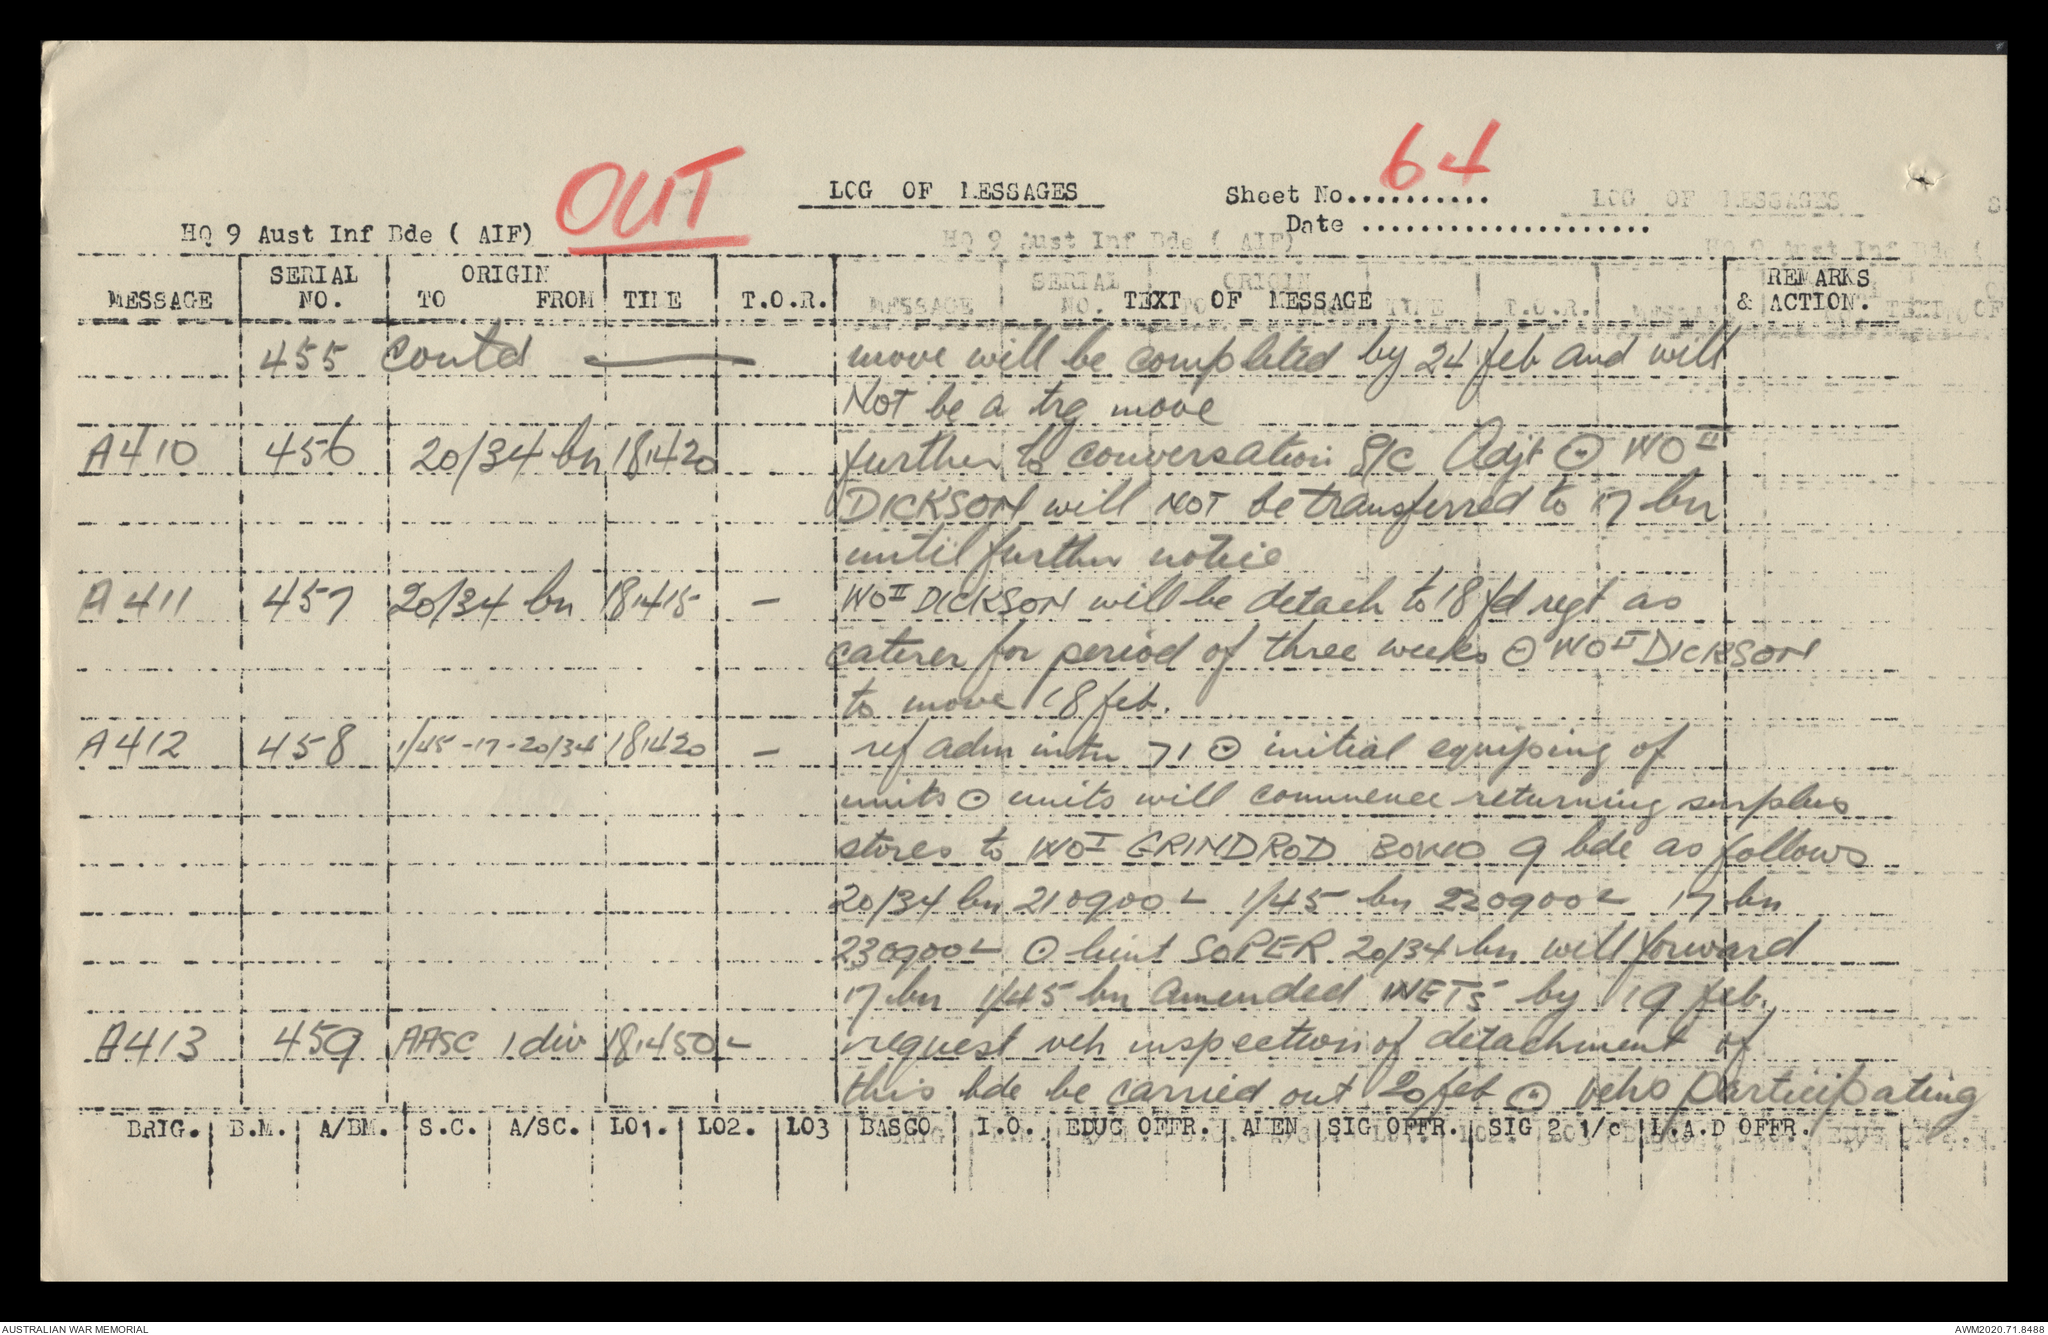 OUT
LOG OF MESSAGES
Sheet No........... 64
Date ....................
HQ 9 Aust Inf Bde ( AIF)
MESSAGE SERIAL NO. ORIGIN TO FROM TIME T.O.R. TEXT OF MESSAGE REMARKS & ACTION.
455 contd — move will be completed by 24 feb and will
NOT be a trg move
A410 456 20/34 bn 181420 further to conversation S/C Adjt ⊙ WO II
DICKSON will NOT be transferred to 17 bn
until further notice
A411 457 20/34 bn 181415 — WO II DICKSON will be detach to 18 fd regt as
caterer for period of three weeks ⊙ WO II DICKSON
to move 18 feb.
A412 458 1/45-17-20/34 181420 — ref adm instn 71 ⊙ initial equiping of
units ⊙ units will commence returning surplus
stores to WO I GRINDROD BOWO 9 bde as follows
20/34 bn 210900L 1/45 bn 220900L 17 bn
230900L ⊙ lieut SOPER 20/34 bn will forward
17 bn 1/45 bn amended WETS by 19 feb.
A413 459 AASC 1 div 181450L request veh inspection of detachment of
this bde be carried out 20 feb ⊙ vehs participating
BRIG. B.M. A/BM. S.C. A/SC. LO1. LO2. LO3 BASCO I.O. EDUC OFFR. AMEN SIG OFFR. SIG 2 1/c L.A.D OFFR.
AUSTRALIAN WAR MEMORIAL
AWM2020.71.8488